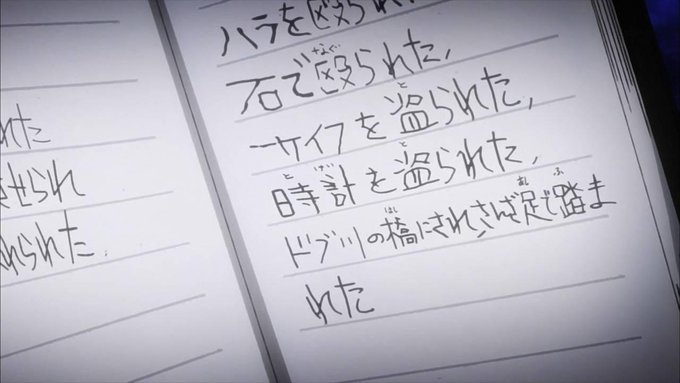 れた
せられ
れられた.
ハラを殴られた
石で殴られた,
サイフを盗られた,
時計を盗られた,
ドブ川の橋にされ、さんざ足で踏ま
れた